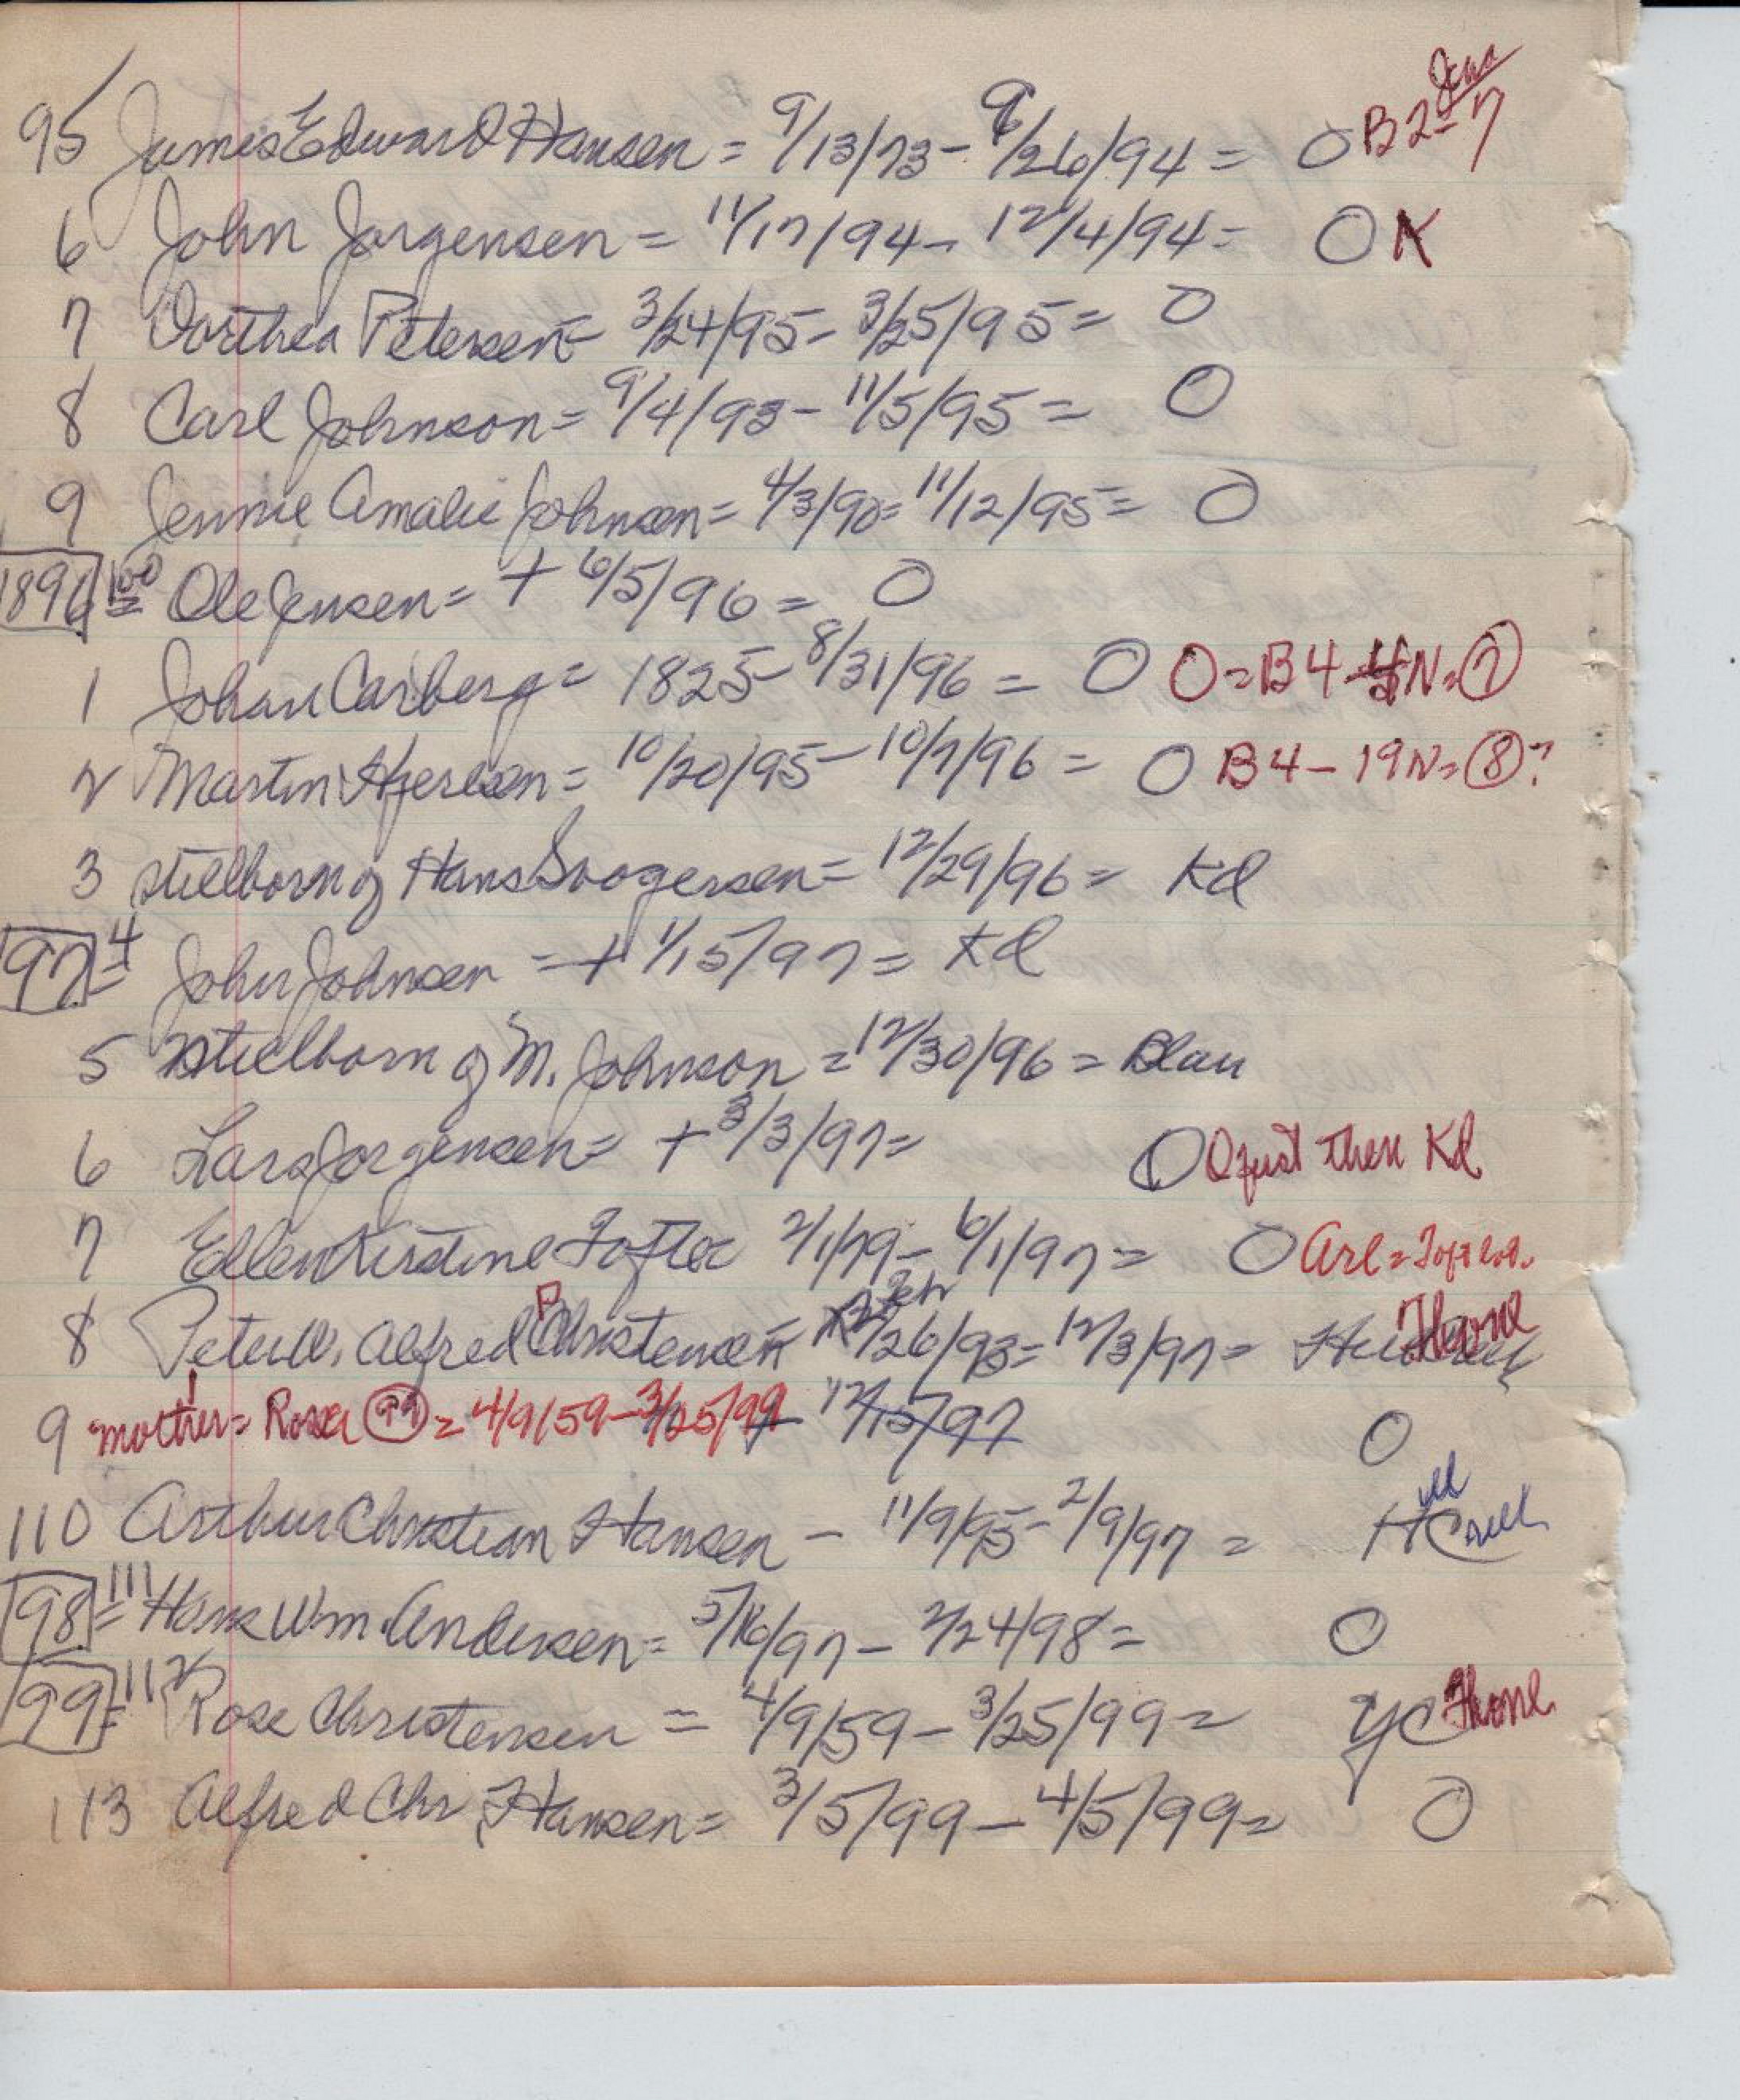 95 James Edward Hansen = 9/13/73 - 9/26/94 = O B2 = 7
6 John Jorgensen = 11/17/94 - 12/4/94 = OK
7 Dorthea Petersen = 3/24/95 - 3/25/95 = O
8 Carl Johnson = 9/4/93 - 11/5/95 = O
9 Jennie Amalie Johnsen = 4/3/90 = 11/12/95 = O
1896 100 = Ole Jensen = + 6/5/96 = O
1 Johan Carlberg = 1825 - 8/31/96 = O O = B4 - N = 7
2 Martin = 10/20/95 - 10/7/96 = O B4 - 19N = 8?
3 stillborn of Hans = 12/29/96 = Kd
97 = 4 John Johnsen = + 1/15/97 = Kd
5 stillborn of M. Johnson = 12/30/96 = Blau
6 Lars Jorgensen = + 3/3/97 = O O just then Kd
7 Ellen Kirstine Tofter 2/1/79 - 6/1/97 = O Arl =
8 Peter W. Alfred P Christensen = Feb 2/26/93 = 12/3/97 = Thone
9 mother = Rose 99 = 4/9/59 - 3/25/99 - 12/15/97 O
110 Arthur Christian Hansen - 11/9/95 - 2/9/97 =
98 = 111 Hans Wm. Andersen = 5/16/97 - 2/24/98 = O
99 = 112 Rose Christensen = 4/9/59 - 3/25/99 = YC Thone
113 Alfred Chr. Hansen = 3/5/99 - 4/5/99 = O